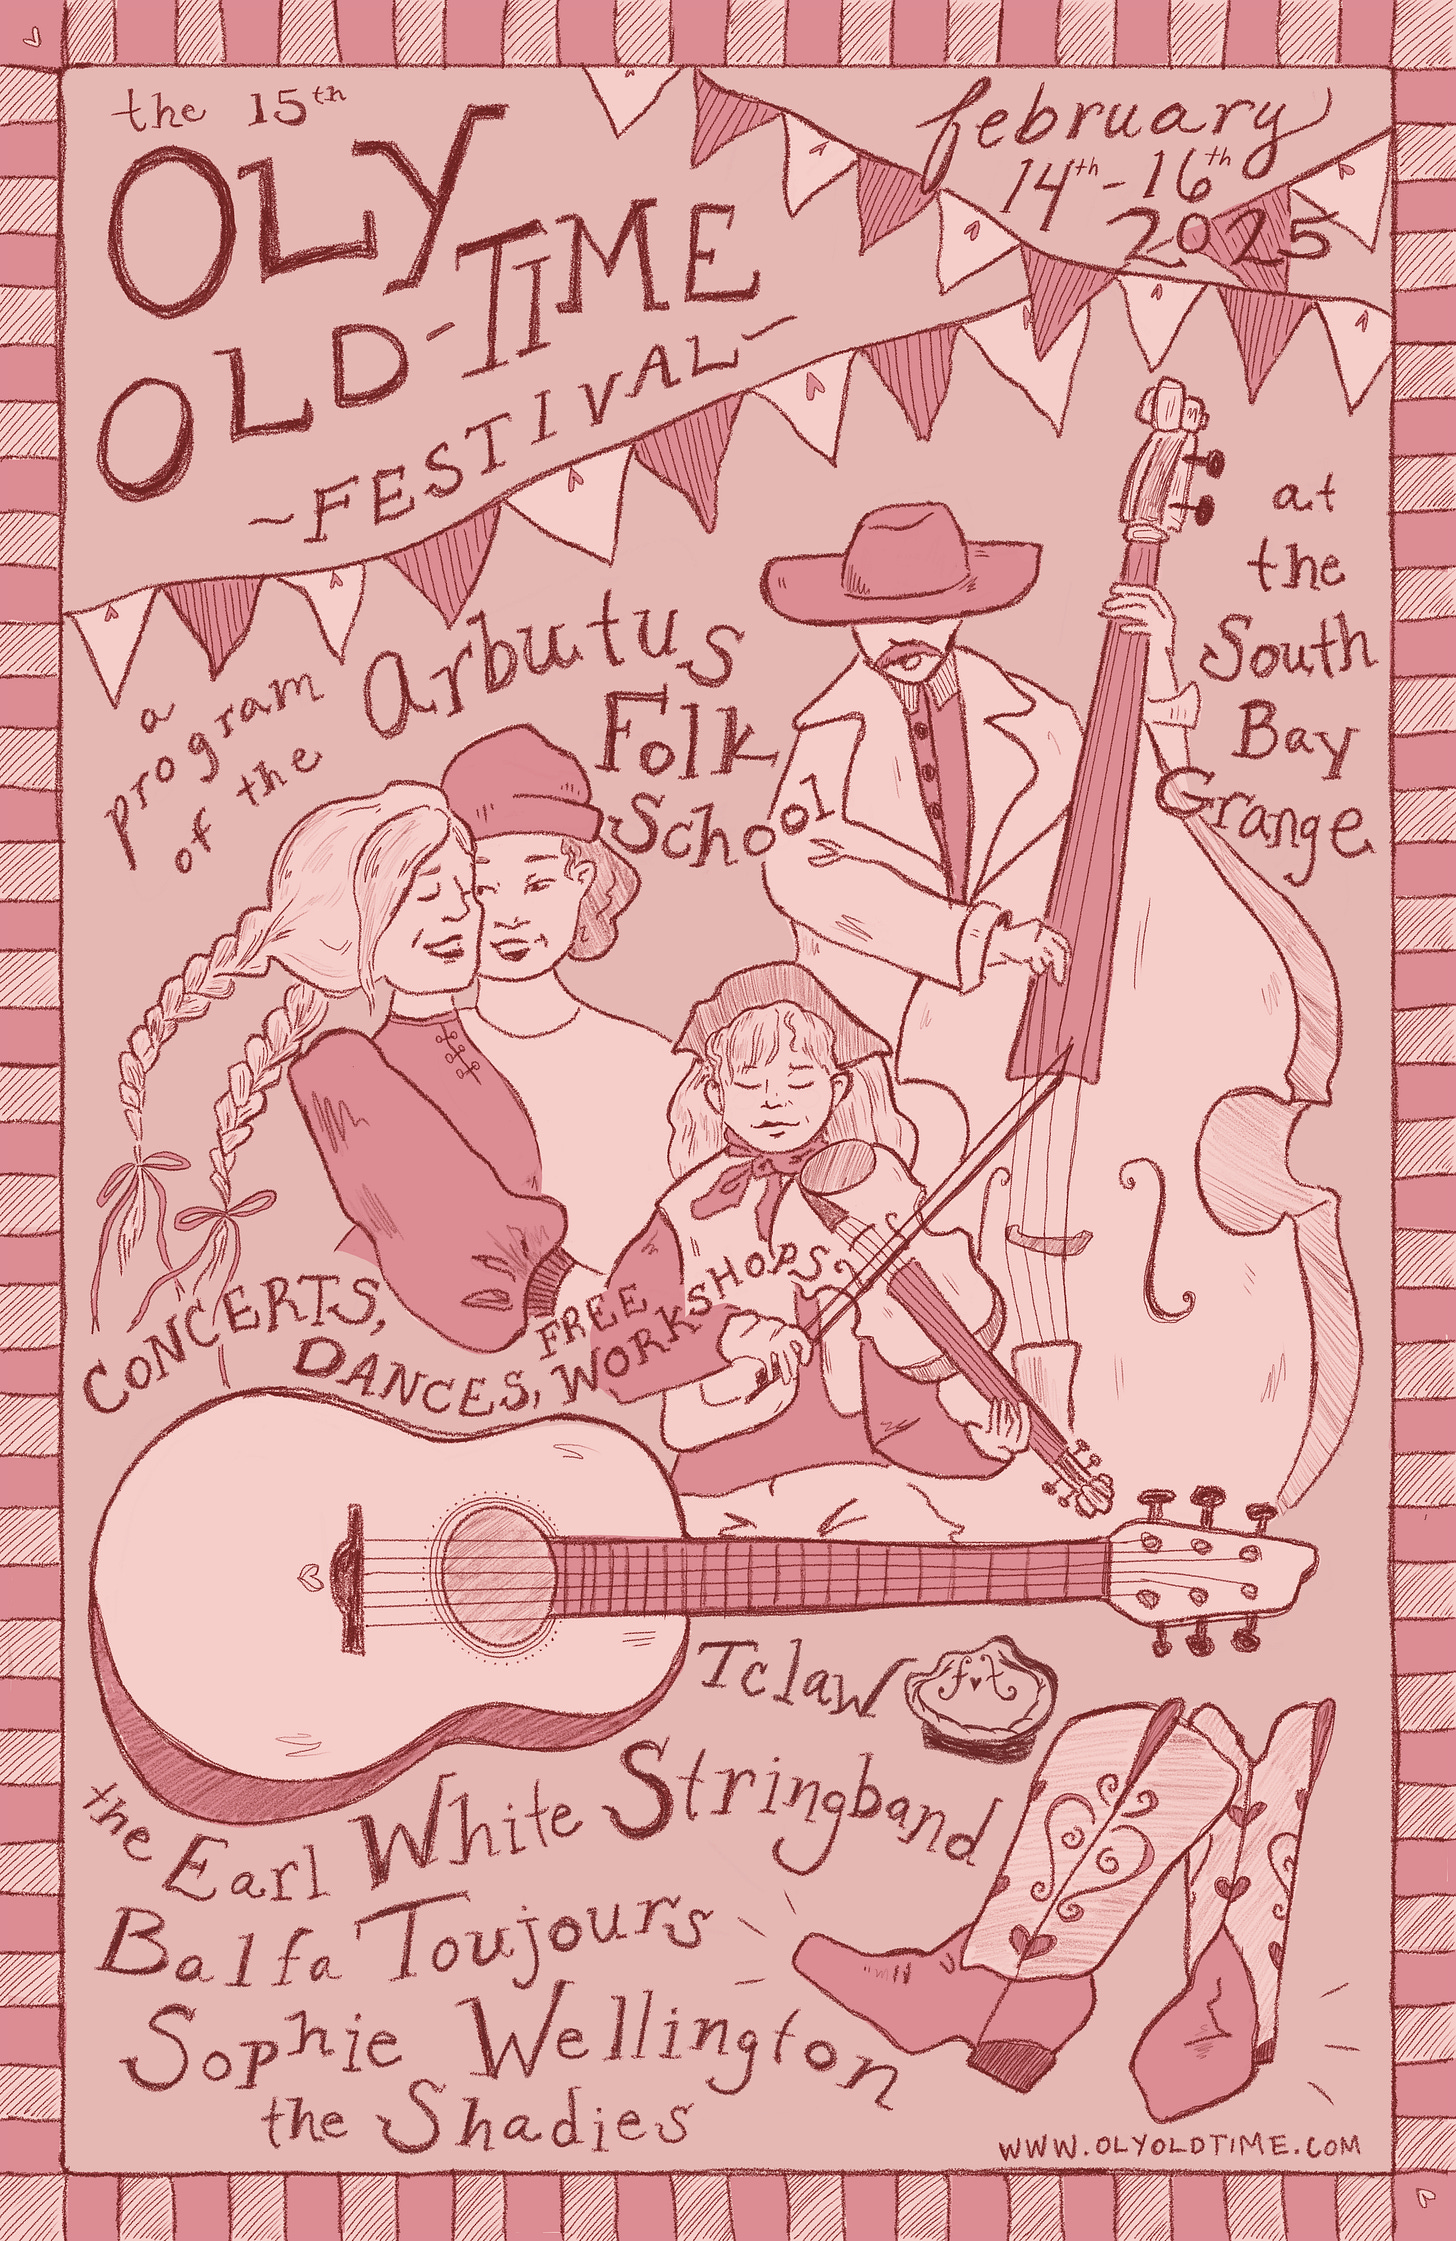 the 15th
OLY
OLD-TIME
~FESTIVAL~
february
14th-16th
2025
at
the
South
Bay
Grange
a
program
of the
Arbutus
Folk
School
CONCERTS,
DANCES,
FREE
WORKSHOPS
Tclaw
f♥t
the Earl White Stringband
Balfa Toujours
Sophie Wellington
the Shadies
WWW.OLYOLDTIME.COM